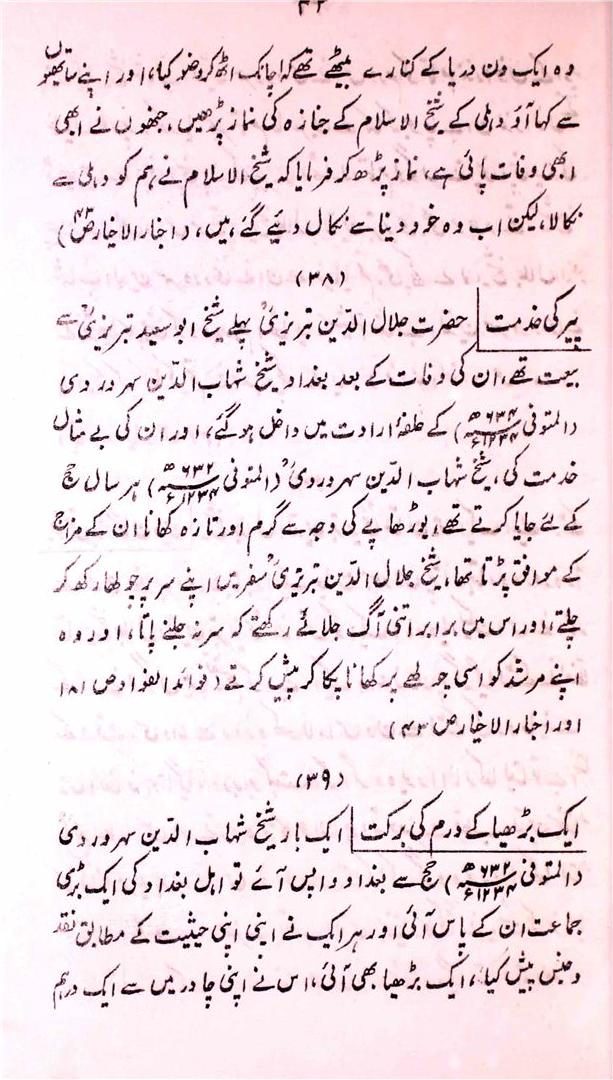 ۴۲
وہ ایک دن دریا کے کنارے بیٹھے تھے کہ اچانک اٹھ کر وضو کیا، اور اپنے ساتھیوں
سے کہا آؤ دہلی کے شیخ الاسلام کے جنازہ کی نماز پڑھیں، جنھوں نے ابھی
ابھی وفات پائی ہے، نماز پڑھ کر فرمایا کہ شیخ الاسلام نے ہم کو دہلی سے
نکالا، لیکن اب وہ خود دینا سے نکال دیئے گئے ہیں، (اخبار الاخیار ص ۴۳)
(۳۸)
پیر کی خدمت حضرت جلال الدین تبریزیؒ پہلے شیخ ابو سعید تبریزیؒ سے
بیعت تھے، ان کی وفات کے بعد بغداد شیخ شہاب الدین سہروردی
(المتوفی ۶۳۲ھ ۱۲۳۴ء) کے حلقۂ ارادت میں داخل ہو گئے، اور ان کی بے مثال
خدمت کی، شیخ شہاب الدین سہروردیؒ (المتوفی ۶۳۲ھ ۱۲۳۴ء) ہر سال حج
کے لئے جایا کرتے تھے، بوڑھاپے کی وجہ سے گرم اور تازہ کھانا ان کے مزاج
کے موافق پڑتا تھا، شیخ جلال الدین تبریزیؒ سفر میں اپنے سر پر چولھا رکھ کر
چلتے، اور اس میں برابر اتنی آگ جلائے رکھتے کہ سر نہ جلنے پاتا، اور وہ
اپنے مرشد کو اسی چولھے پر کھانا پکا کر پیش کرتے (فوائد الفواد ص ۱۸۱
اور اخبار الاخیار ص ۴۳)
(۳۹)
ایک بڑھیا کے درم کی برکت ایک بار شیخ شہاب الدین سہروردی
(المتوفی ۶۳۲ھ ۱۲۳۴ء) حج سے بغداد واپس آئے تو اہل بغداد کی ایک بڑی
جماعت ان کے پاس آئی اور ہر ایک نے اپنی اپنی حیثیت کے مطابق نقد
و جنس پیش کیا، ایک بڑھیا بھی آئی، اس نے اپنی چادر میں سے ایک درہم